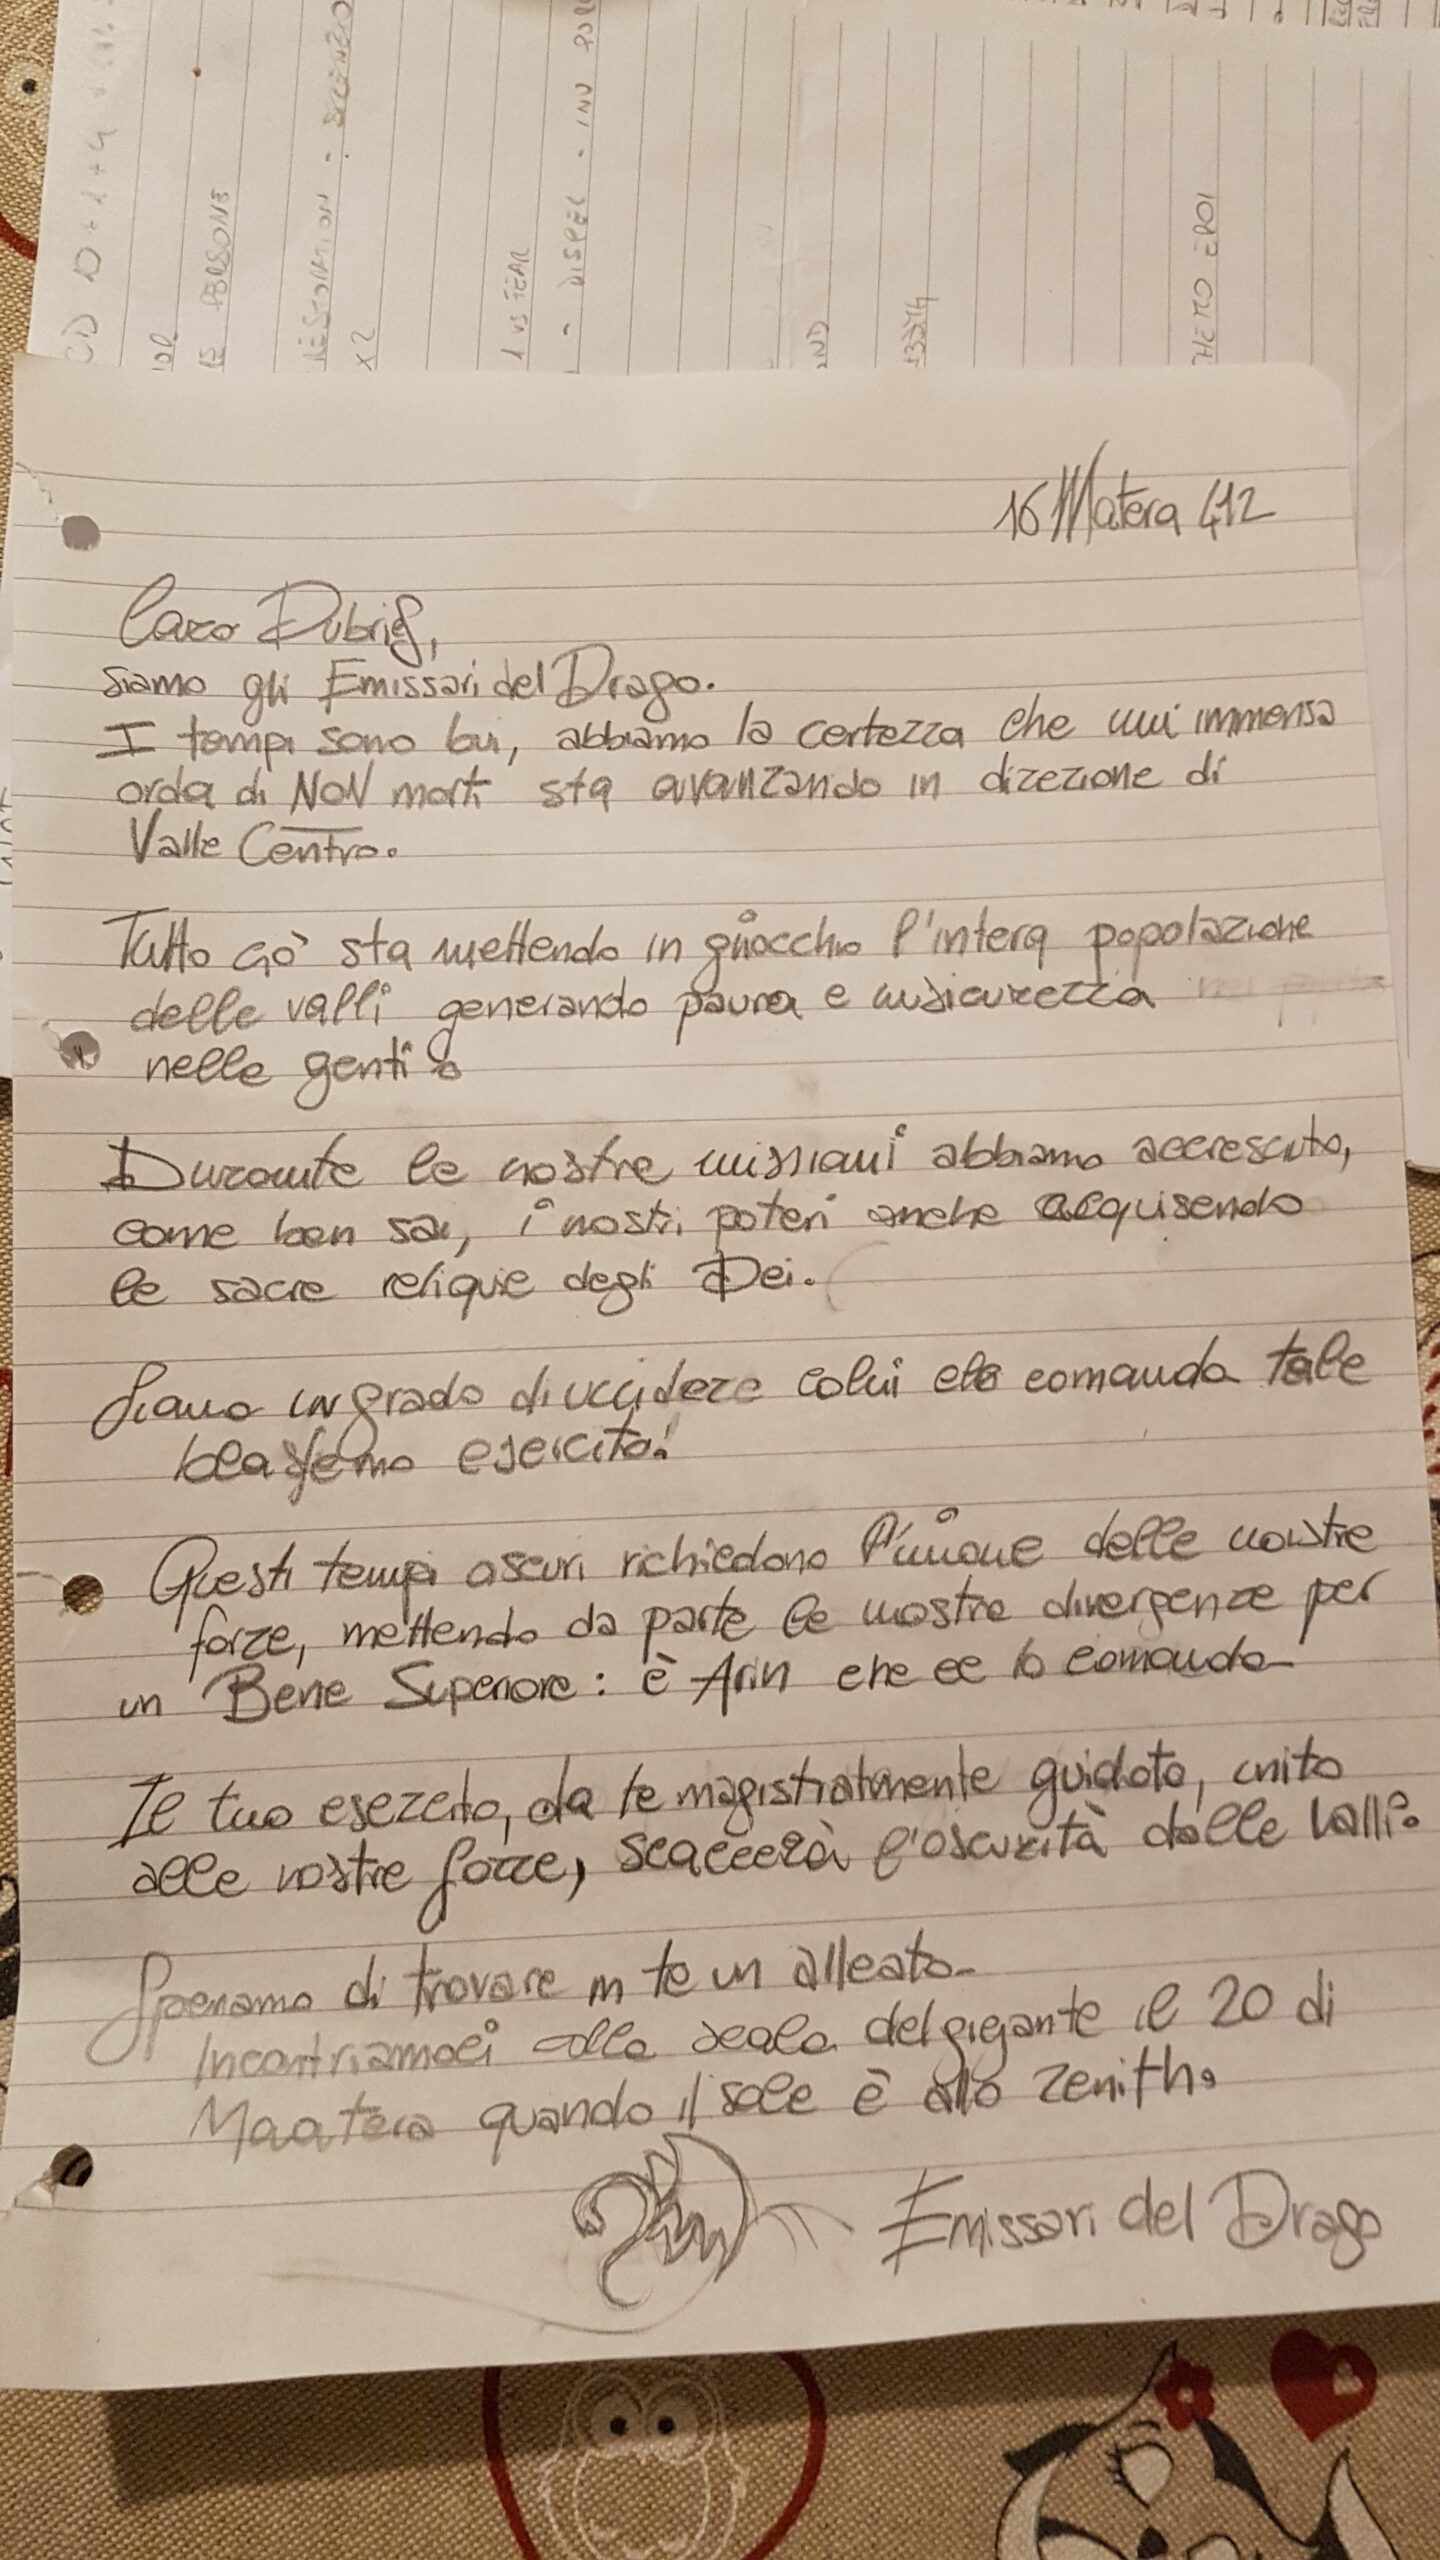 16 Matera 412
Caro Dubrief,
siamo gli Emissari del Drago.
I tempi sono bui, abbiamo la certezza che un'immensa
orda di NON morti sta avanzando in direzione di
Valle Centro.
Tutto ciò sta mettendo in ginocchio l'intera popolazione
delle valli generando paura e insicurezza
nelle genti.
Durante le nostre missioni abbiamo accresciuto,
come ben sai, i nostri poteri anche acquisendo
le sacre reliquie degli Dei.
Siamo in grado di uccidere colui che comanda tale
blasfemo esercito!
Questi tempi oscuri richiedono l'unione delle nostre
forze, mettendo da parte le nostre divergenze per
un Bene Superiore: è Arin che ce lo comanda
Il tuo esercito, da te magistralmente guidato, unito
alle nostre forze, scaccerà l'oscurità dalle Valli.
Speriamo di trovare in te un alleato.
Incontriamoci alla scala del gigante il 20 di
Maatera quando il sole è allo zenith.
Emissari del Drago
PERSONS
x 2
1 VS FEAR
- DISPEL - INV
EROI